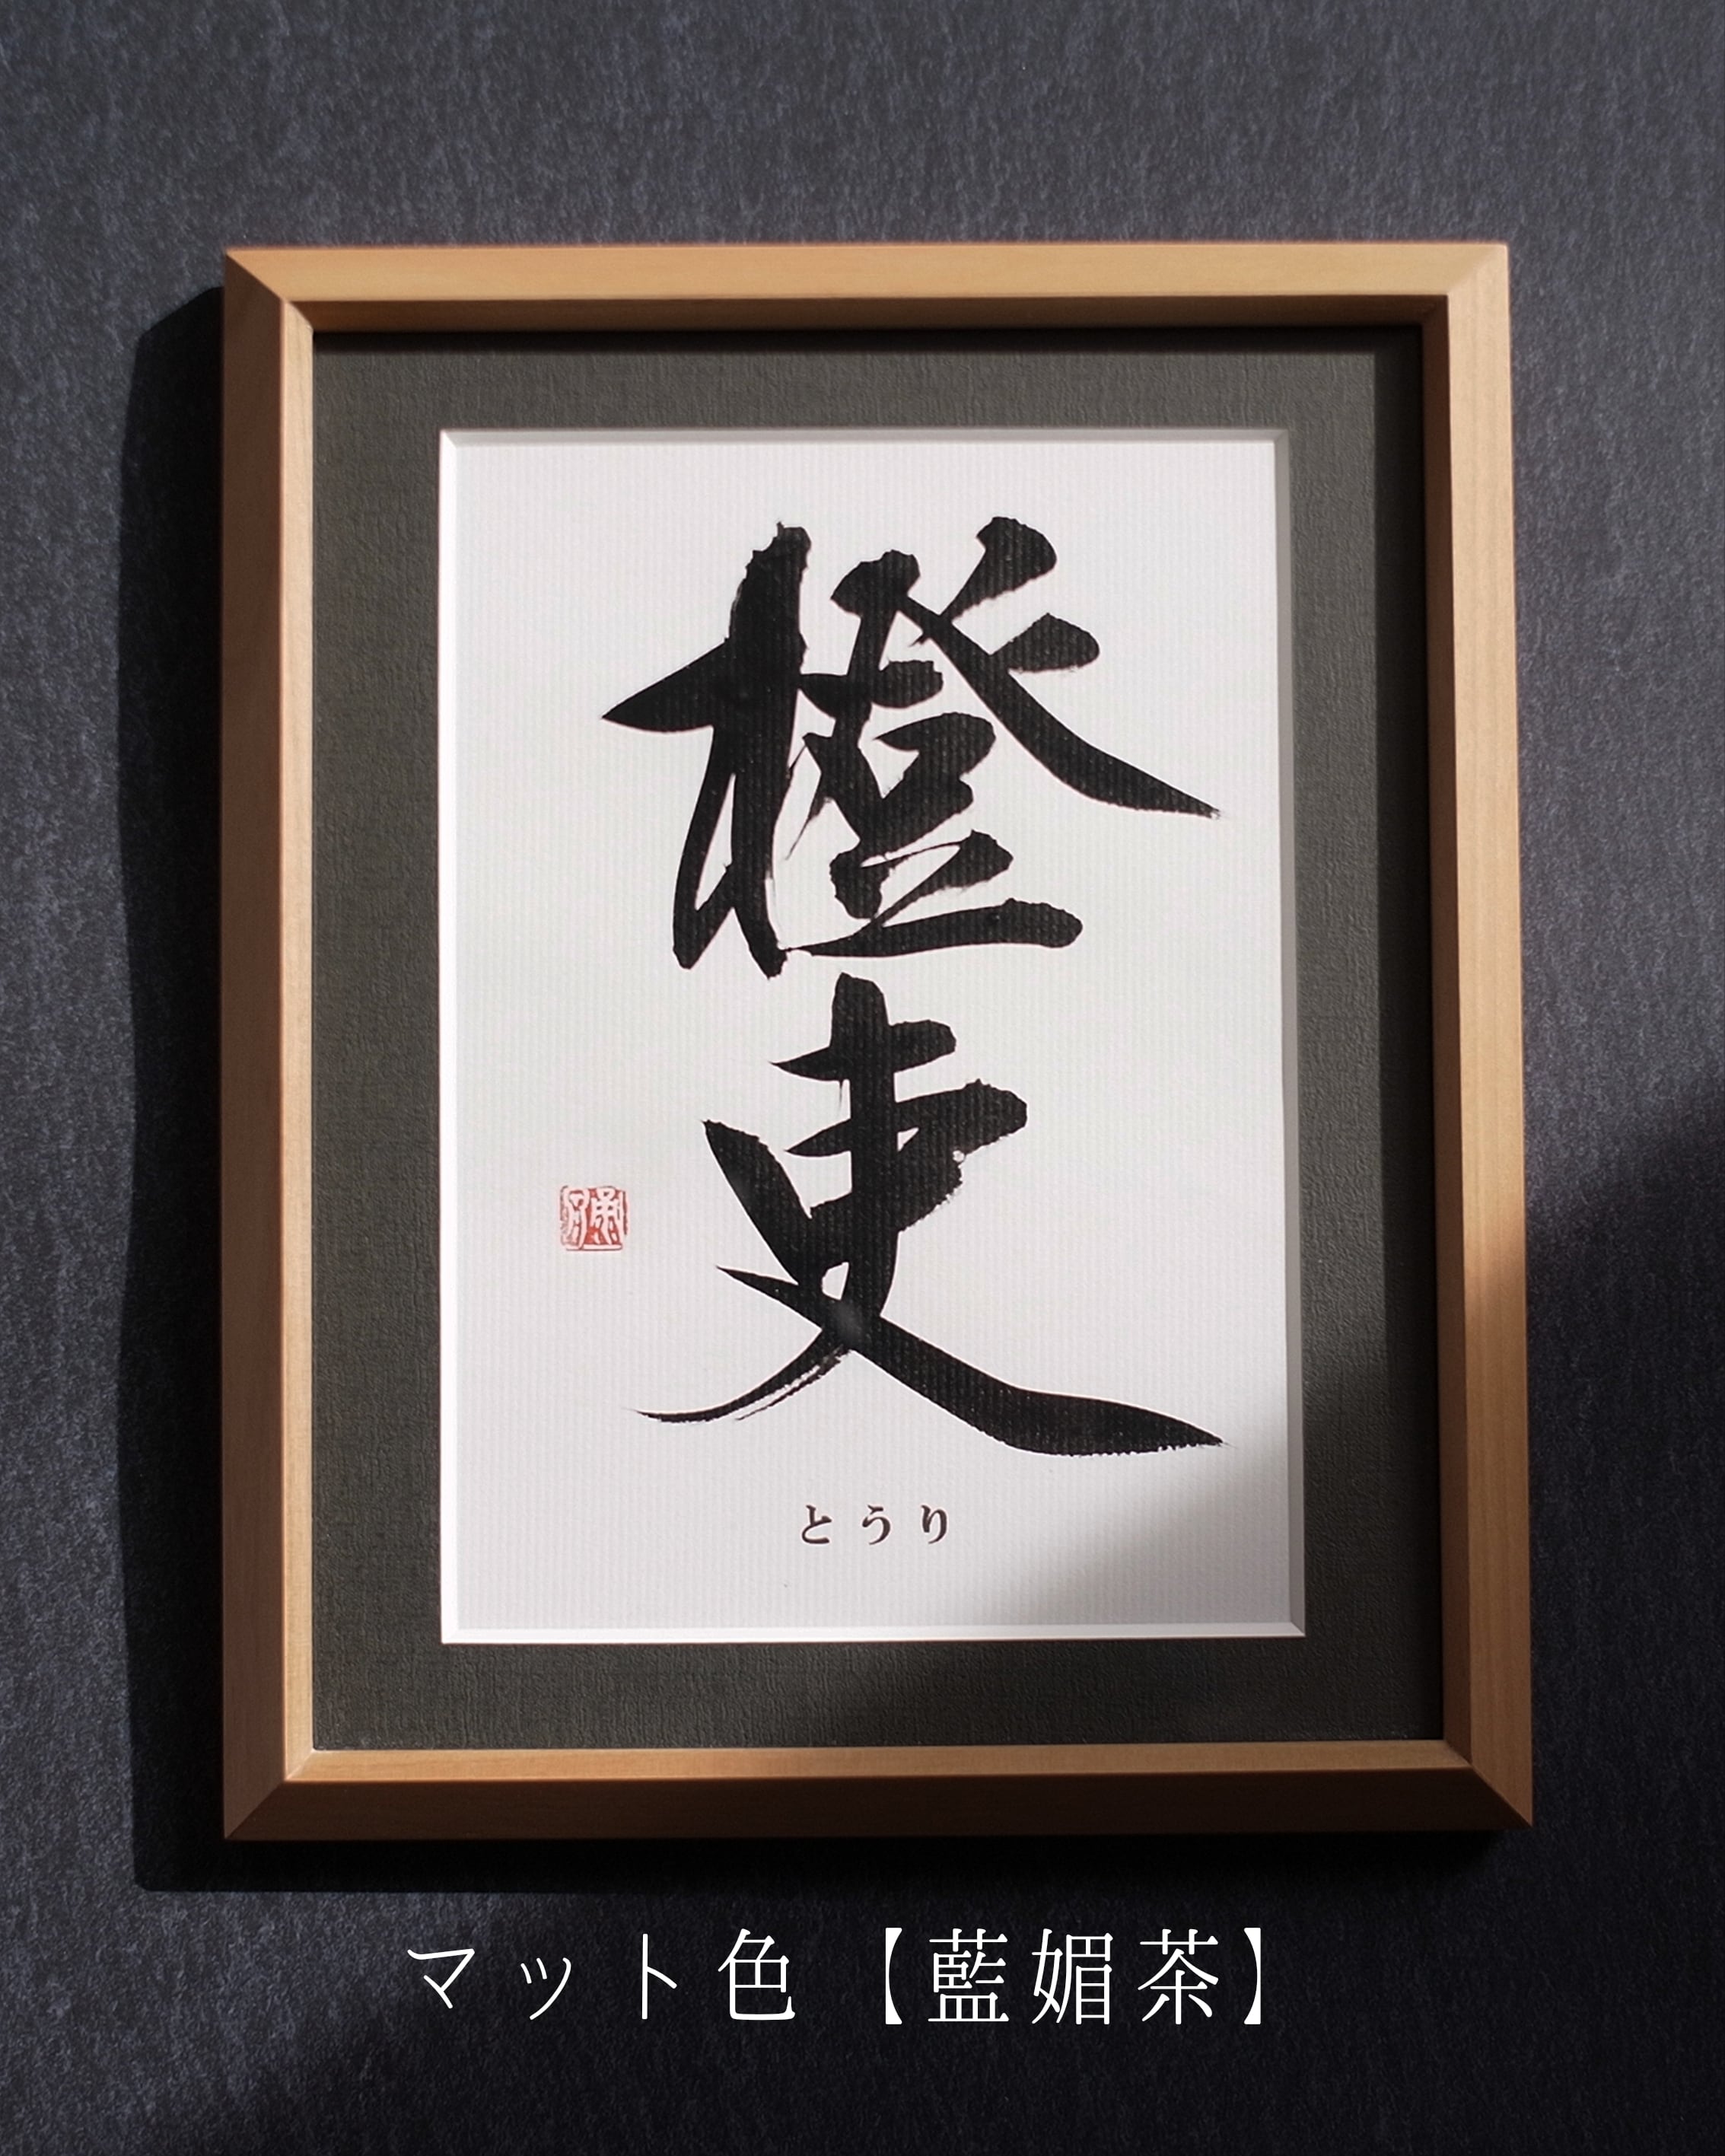 橙
吏
とうり
マット色【藍媚茶】